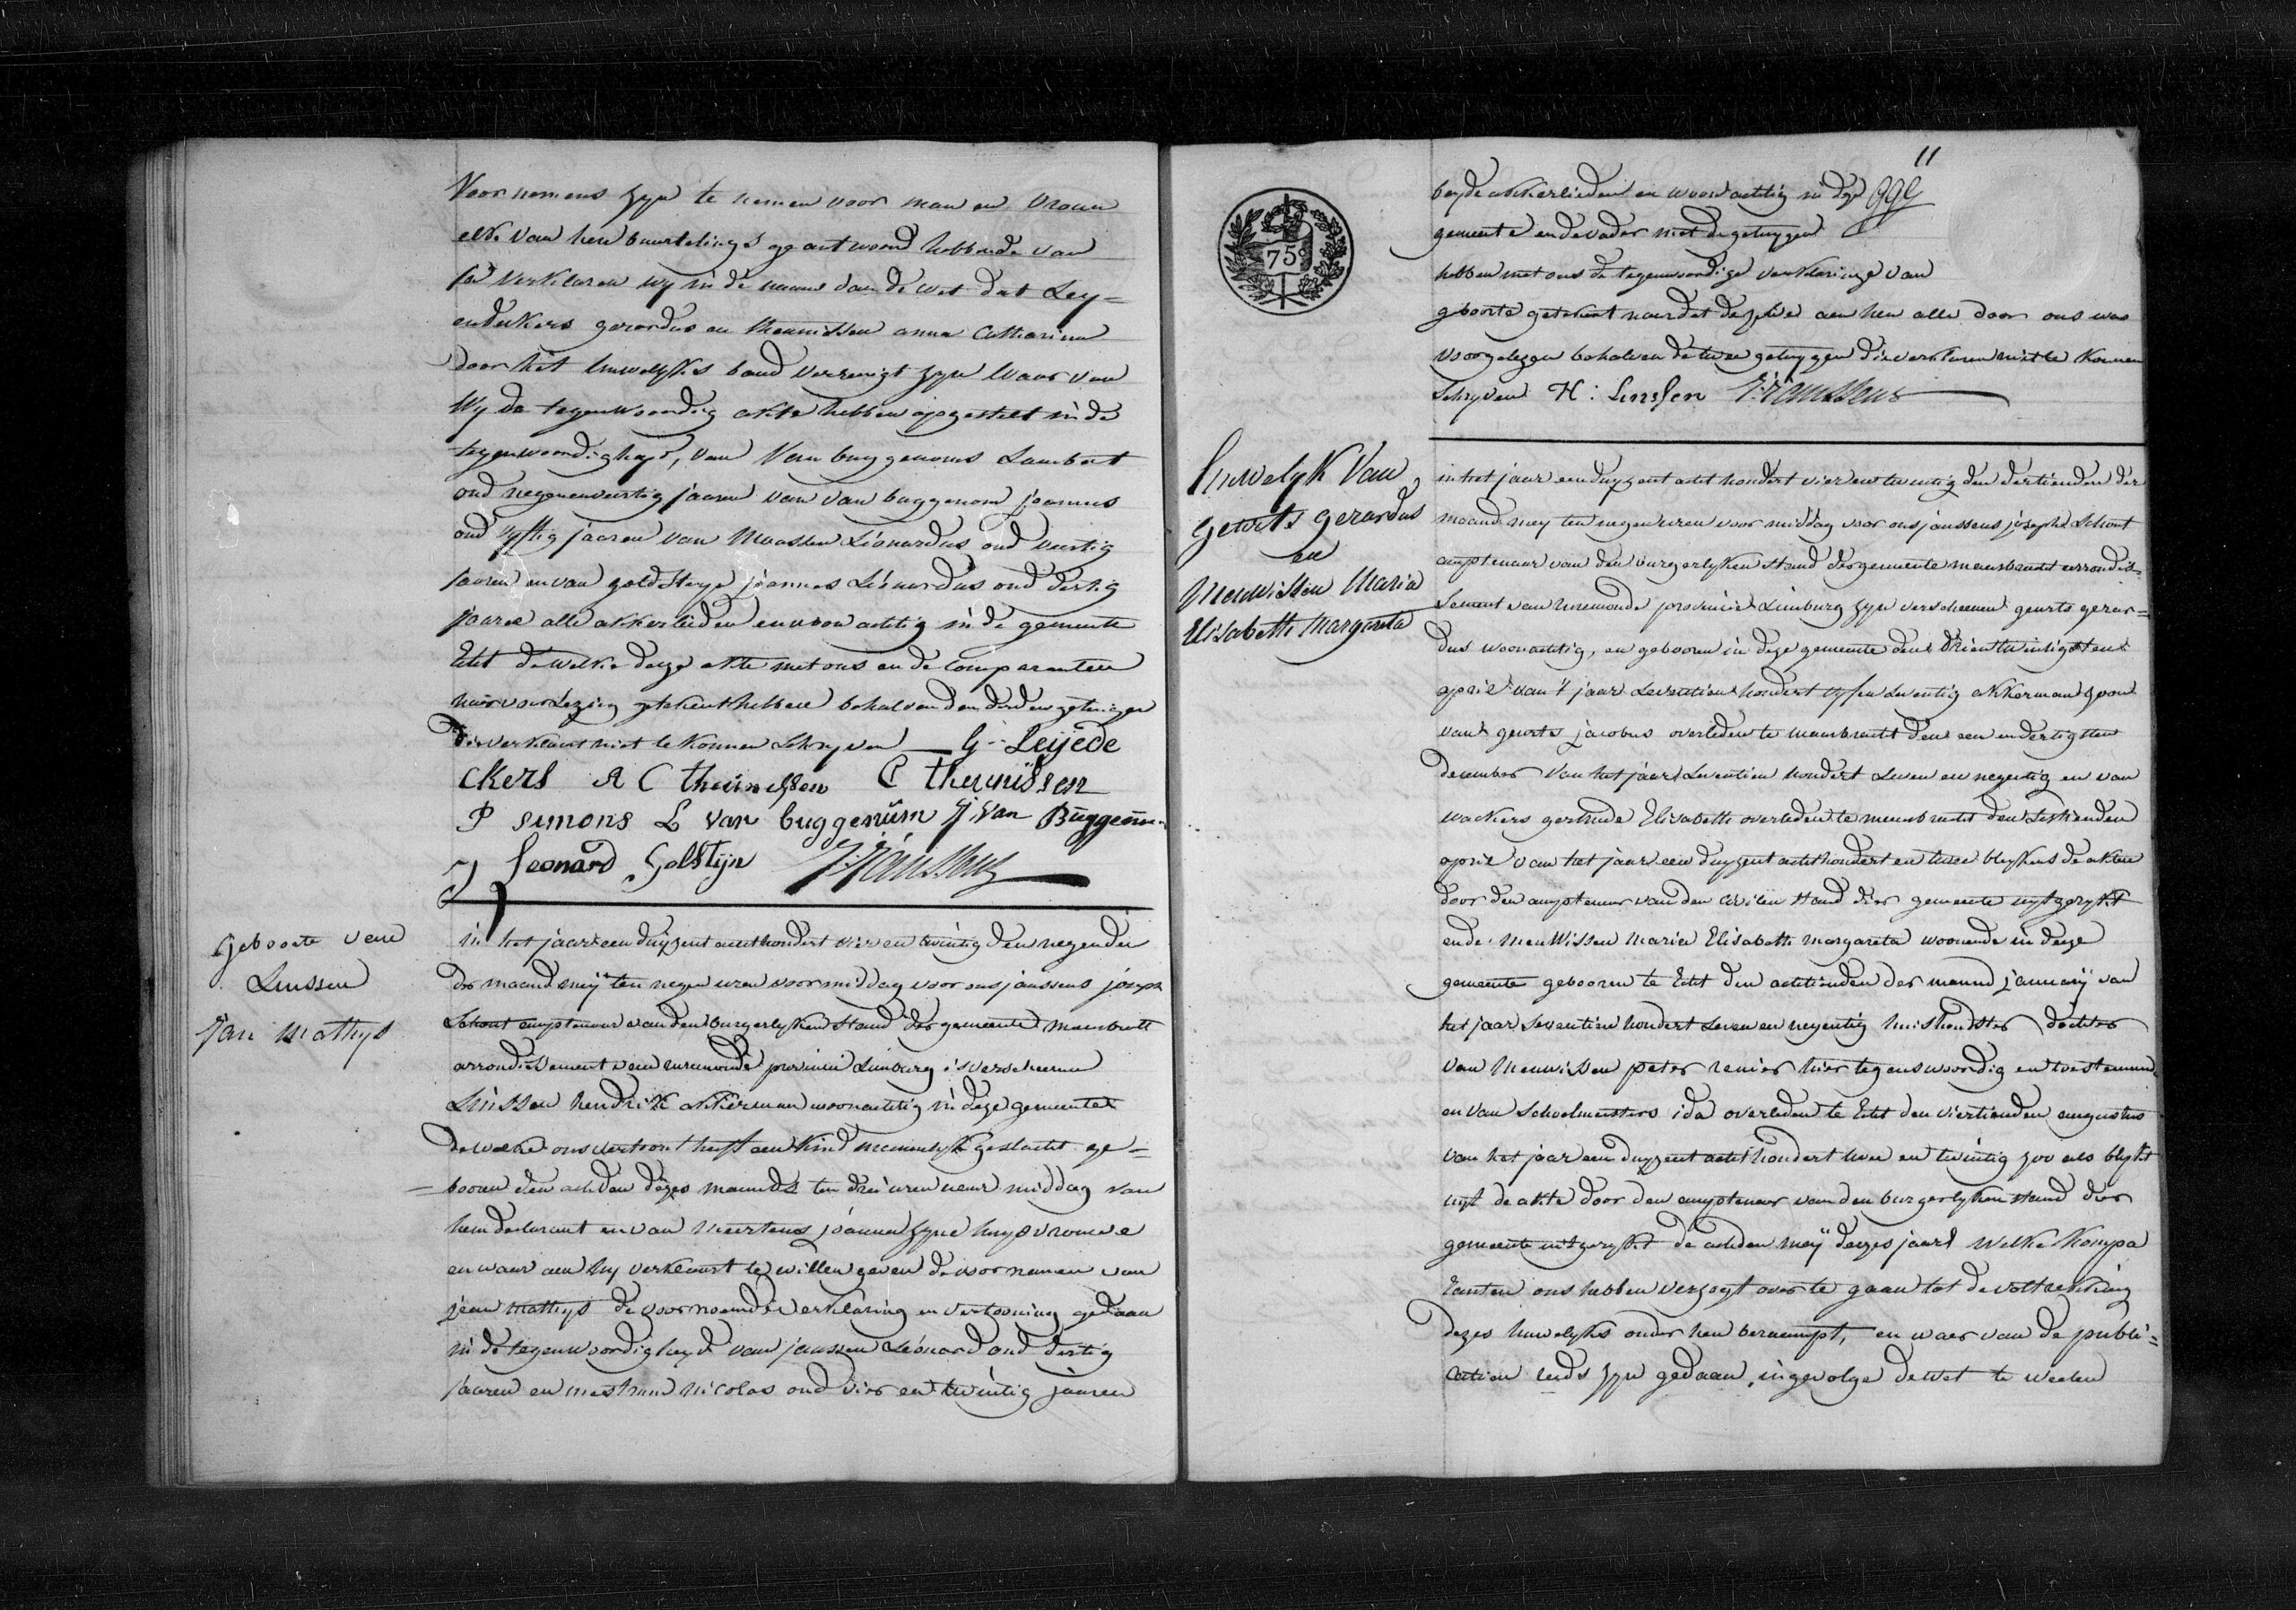 Voornemens zyn te nemen voor man en vrouw
elk van hen buurtelings geantwoord hebbende van
ja verklaren wy in de naam van de wet dat Ley=
endeckers gerardus en theunissen anna Catharina
door het huwelyks band vereenigt zyn waar van
Wy de tegenwoordig akte hebben opgestelt in de
tegenwoordigheyd, van Van buggenoms Lambert
oud negenenveertig jaaren van Van buggenom joannes
oud vyftig jaaren van Maassen Léonardus oud veertig
jaaren en van goldsteyn joannes Léonardus oud dertig
jaaren alle akkerlieden en woonachtig in de gemeente
Echt de welke deeze akte met ons en de Comparanten
naar voorlezing getekent hebben behalven den derden getuigen
die verklaart niet te konnen schryven G: Leijede
ckers A C theunissen C theunissen
P simons L van buggenum J: van Buggenum
J Leonard Golstijn J: Janssens
Geboorte van
Linssen
Jan Mathys
in het jaar een duyzent achthondert vier en twintig den negenden
der maand meÿ ten negen uren voormiddag voor ons janssens joseph
Schout amptenaar van den burgerlyken stand der gemeente Maasbracht
arrondissement van ruremonde provincie Limburg is verscheenen
Linssen hendrik akkerman woonachtig in deze gemeente
dewelke ons vertoont heeft een kind mannelyk geslacht ge=
=booren den achsten dezes maands ten drei uren naar middag van
hem declarant en van Meertens joanna zyne huysvrouwe
en waar aen hy verklaart te willen geven de voornamen van
jean mathys de voornoemde verklaring en vertooning gedaan
in de tegenwoordigheyd van janssen Léonard oud dertig
jaaren en mestrum nicolas oud vier en twintig jaaren
11
beyde akkerlieden en woonachtig in deze
gemeente en de vader met de getuygen
hebben met ons de tegenwoordige verklaringe van
geboorte getekent naar dat dezelve aen hen alle door ons was
voorgelezen behalven de twee getuygen die verklaren niet te konnen
schryven H: Linssen J: Janssens
75
Huwelyk Van
Geurts gerardus
en
Meuwissen Maria
Elisabeth Margareta
in het jaar een duyzent acht hondert vier en twintig den dertienden der
maand mey ten negen uren voor middag voor ons janssens joseph Schout
amptenaar van den burgerlyken stand der gemeente maasbracht arrondis=
sement van ruremonde provincie Limburg zyn verscheenen geurts gerar=
dus woonachtig, en gebooren in deze gemeente den drientwintigsten
april van 't jaar seventien hondert vyf en seventig akkerman zoon
van geurts jacobus overleden te maasbracht den een en dertigsten
december van het jaar seventien hondert seven en negentig en van
wackers gertrude Elisabeth overleden te maasbracht den sesthienden
april van het jaar een duyzent achthondert en twee blykens de akten
door den amptenaar van den civilen stand der gemeente uytgerykt
ende Meuwissen Maria Elisabeth margareta woonende in deeze
gemeente gebooren te Echt den achtienden der maand januarÿ van
het jaar Seventien hondert Seven en negentig huishoudster dochter
van Meuwissen peter renier hier tegenswoordig en toestemmende
en van Schoolmeesters ida overleden te Echt den viertienden augustus
van het jaar een duyzent acht hondert twee en twintig zoo als blykt
uyt de akte door den amptenaar van den burgerlyken stand der
gemeente uitgerykt de achsten meÿ deezes jaars Welke kompa
ranten ons hebben verzogt over te gaan tot de voltrekking
dezes huwelyks onder hen beraempt, en waer van de publi=
catien reeds zyn gedaan ingevolge de wet te weeten